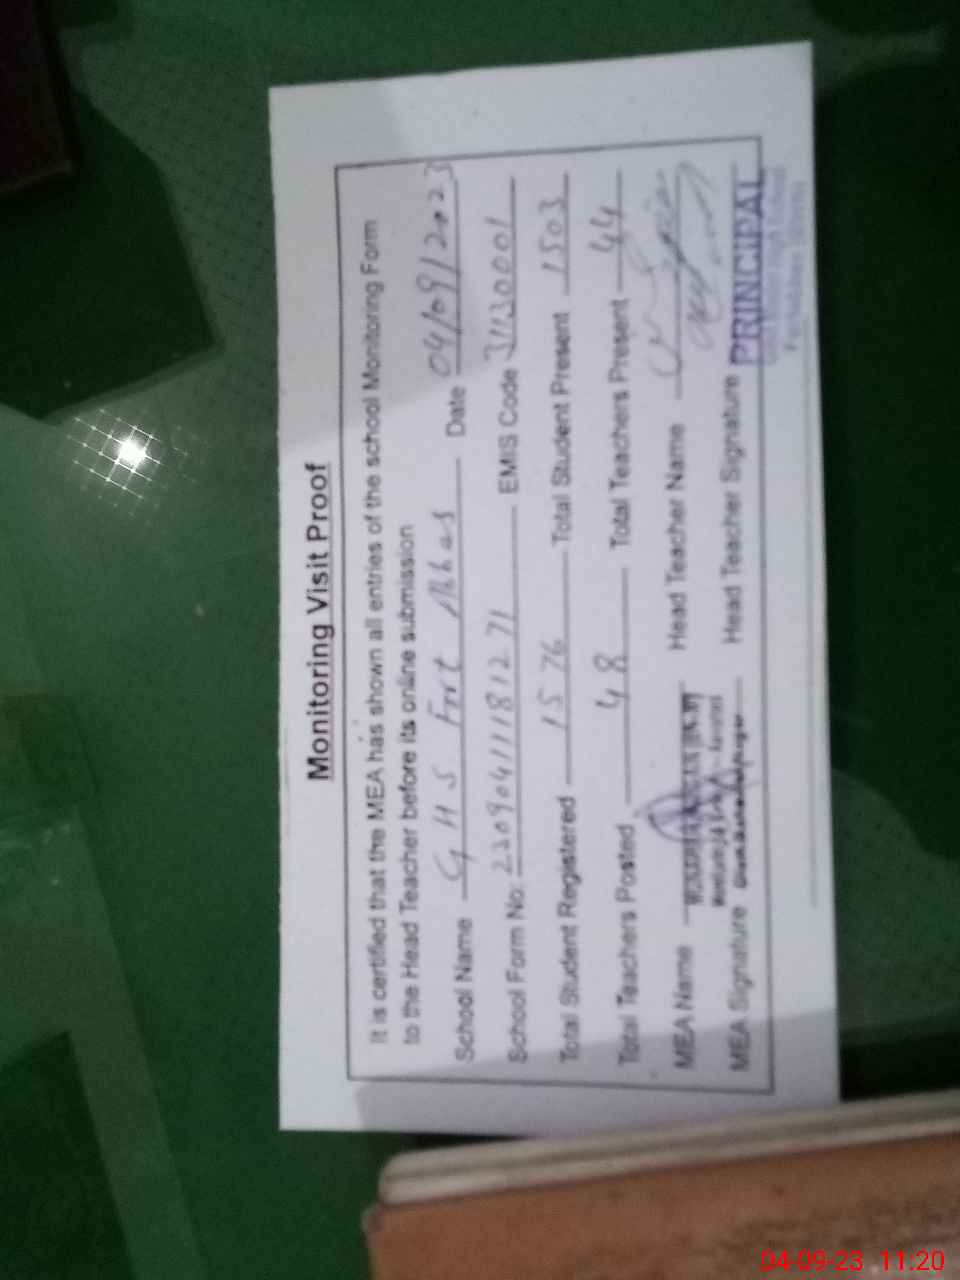 Monitoring Visit Proof
It is certified that the MEA has shown all entries of the school Monitoring Form
to the Head Teacher before its online submission
School Name G H S Fort Abbas Date 04/09/2023
School Form No: 23090411181271 EMIS Code 31130001
Total Student Registered 1576 Total Student Present 1503
Total Teachers Posted 48 Total Teachers Present 44
MEA Name Head Teacher Name
MEA Signature Head Teacher Signature
PRINCIPAL
04-09-23 11:20